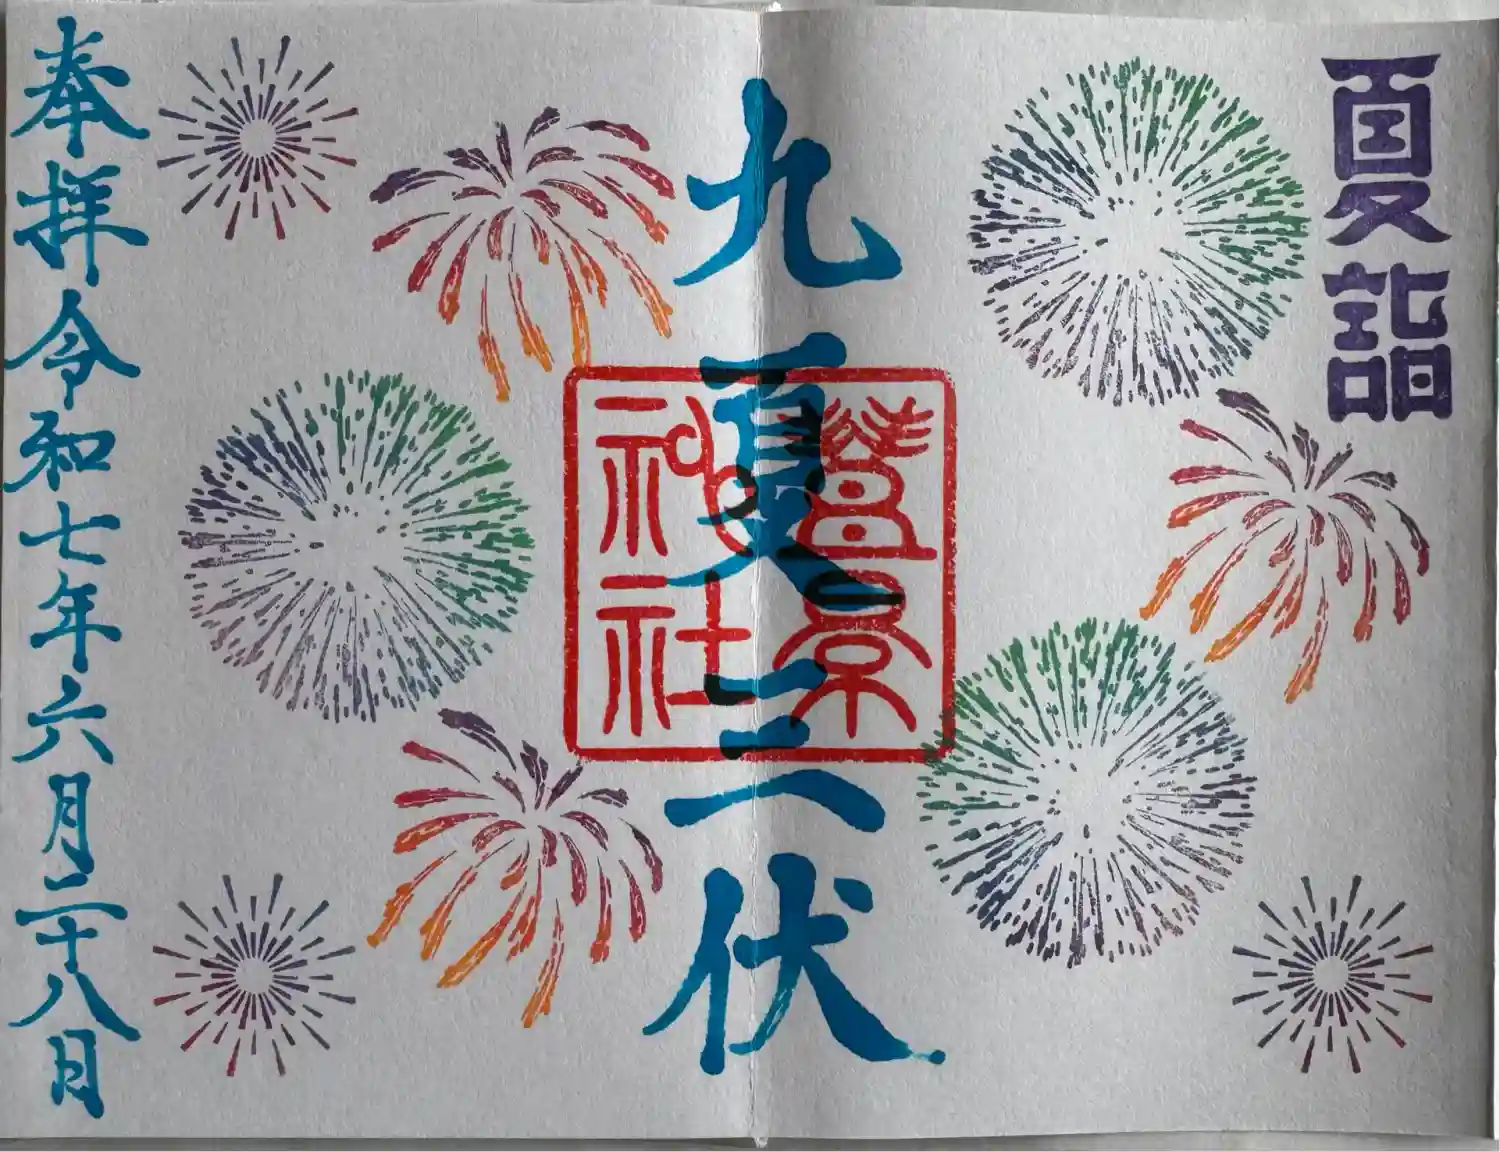 夏詣
九夏三伏
神社
奉拝 令和七年六月二十八日